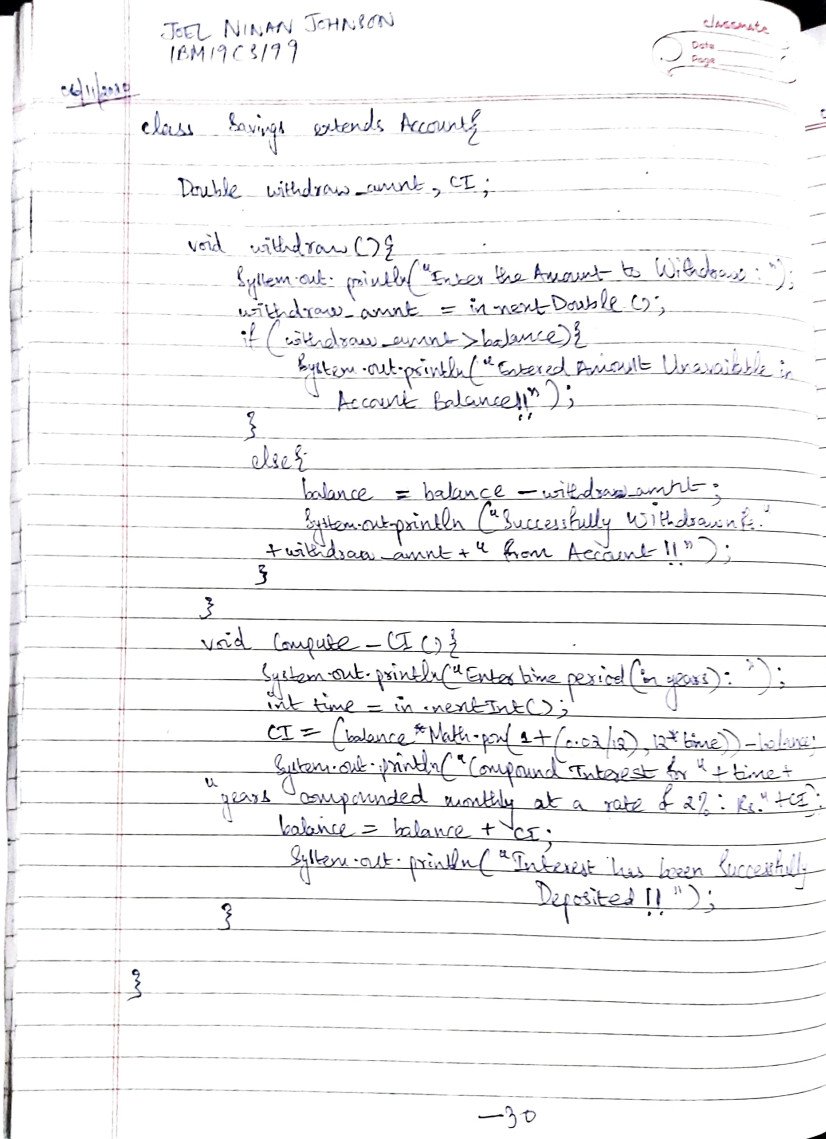 JOEL NINAN JOHNSON
1BM19CS199
classmate
Date
Page
06/11/2020
class Savings extends Account{
Double withdraw_amnt, CI;
void withdraw(){
System.out.println("Enter the Amount to Withdraw: ");
withdraw_amnt = in.nextDouble();
if (withdraw_amnt>balance){
System.out.println("Entered Amount Unavailable in
Account Balance!!");
}
else{
balance = balance - withdraw_amnt;
System.out.println ("Successfully Withdrawn Rs."
+withdraw_amnt+" from Account!!");
}
}
void Compute_CI(){
System.out.println("Enter time period (in years): ");
int time = in.nextInt();
CI = (balance*Math.pow(1+(0.02/12),12*time))-balance;
System.out.println("Compound Interest for "+time+
"years compounded monthly at a rate of 2%: Rs."+CI);
balance = balance + CI;
System.out.println("Interest has been Successfully
Deposited!!");
}
}
-30